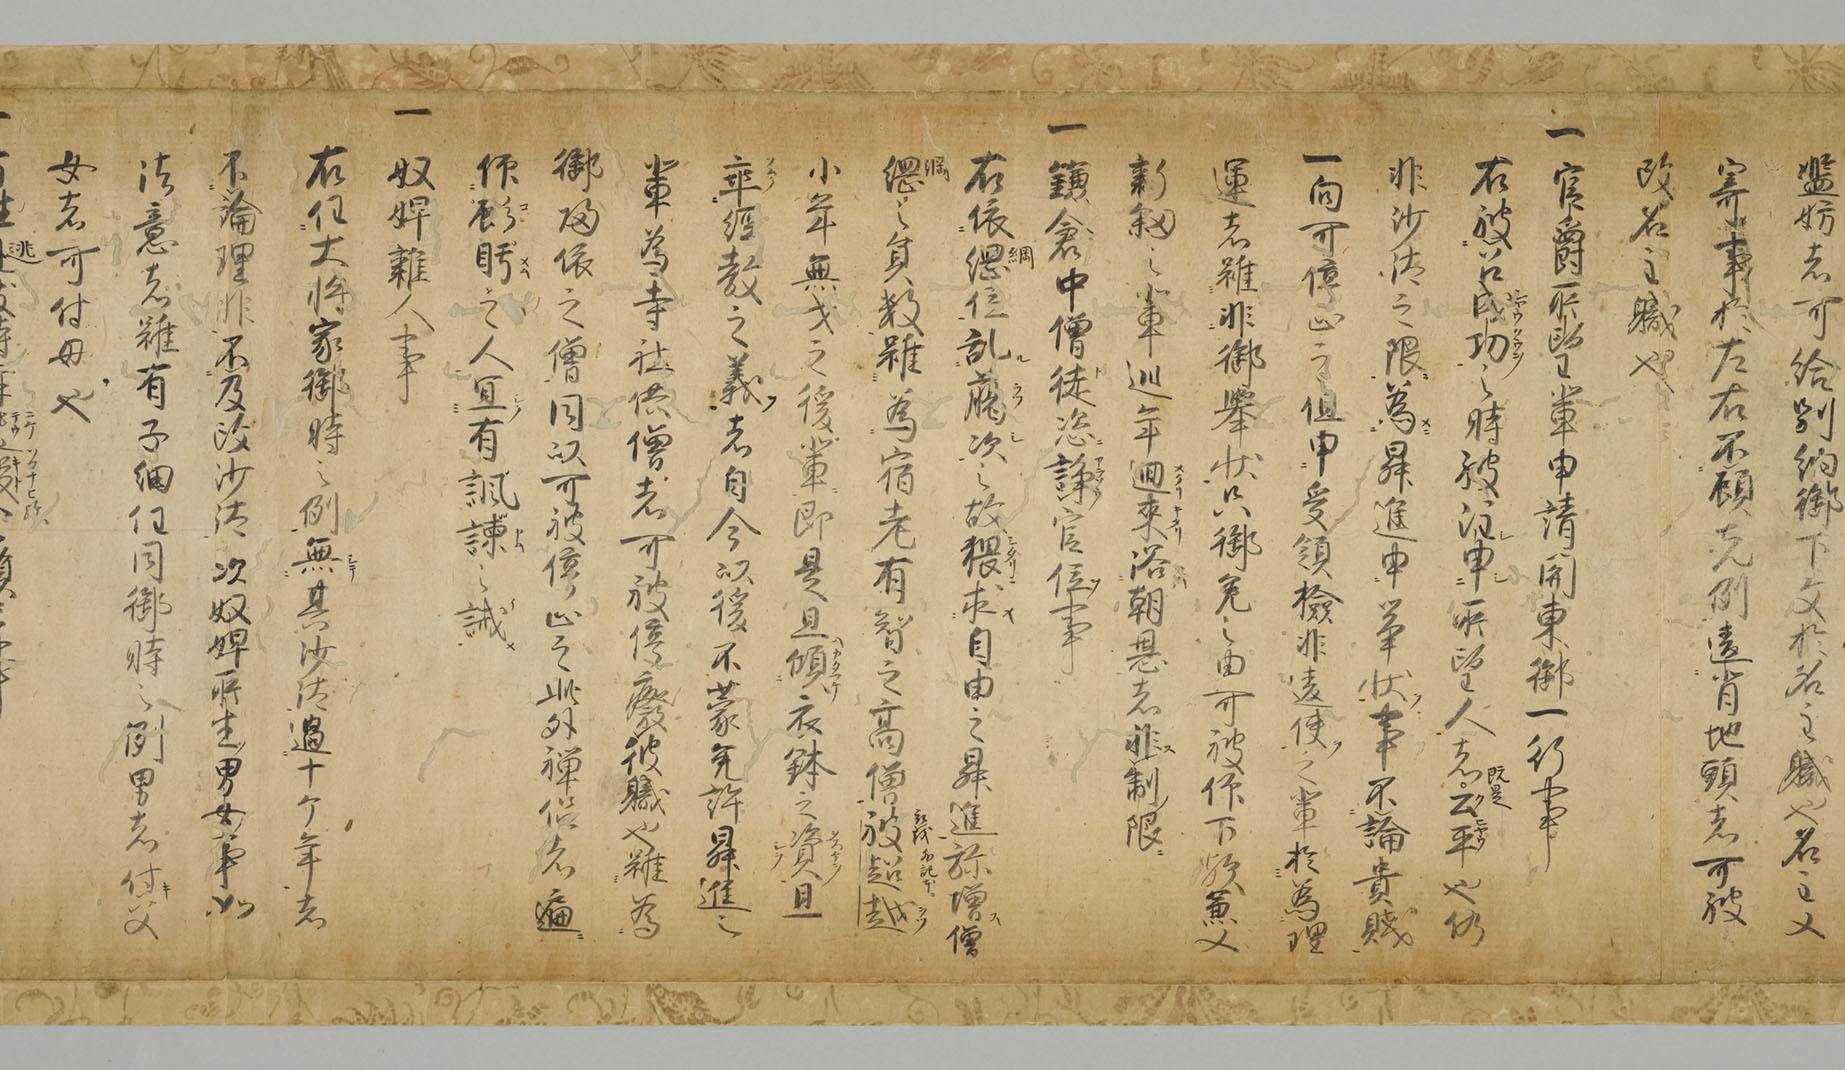 濫妨者可給別納御下文於名主職也名主又
寄事於左右不顧先例違背地頭者可被
改名主職也
一 官爵所望輩申請関東御一行事
右被召成功之時被注申所望人者既是公平也仍
非沙汰之限為昇進申挙状事不論貴賤
一向可停止之但申受領検非違使之輩於為理
運者雖非御挙状只御免之由可被仰下歟兼又
新叙之輩巡年廻来浴朝恩者非制限
一 鎌倉中僧徒恣諍官位事
右依綱位乱﨟次之故猥求自由之昇進弥増僧
綱之員数雖為宿老有智之高僧被超越
小年無才之後輩即是且傾衣鉢之資且
乖経教之義者自今以後不蒙免許昇進之
輩為寺社供僧者可被停廃彼職也雖為
御帰依之僧同以可被停止之此外禅侶者偏
仰顧眄之人宜有諷諫之誡
一 奴婢雑人事
右任大将家御時之例無其沙汰過十ケ年者
不論理非不及改沙汰次奴婢所生男女事如
法意者雖有子細任同御時之例男者付父
女者可付母也